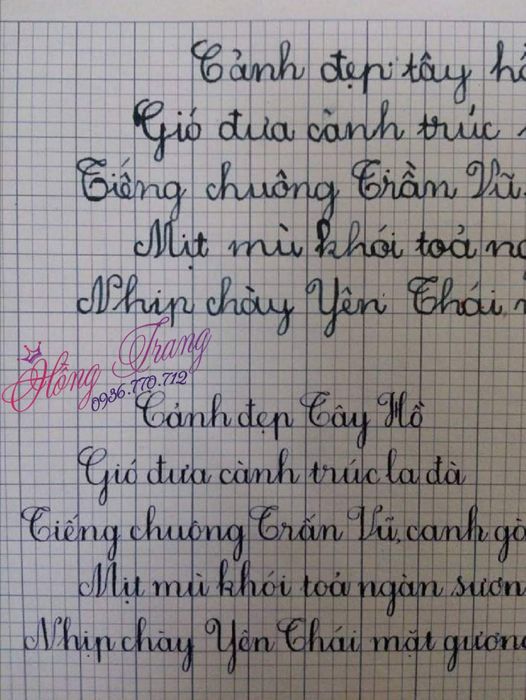 Cảnh đẹp tây hồ
Gió đưa cành trúc
Tiếng chuông Trần Vũ
Mịt mù khói toả
Nhịp chày Yên Thái
Hồng Trang
0936.770.712
Cảnh đẹp Tây Hồ
Gió đưa cành trúc la đà
Tiếng chuông Trấn Vũ, canh gà
Mịt mù khói toả ngàn sương
Nhịp chày Yên Thái mặt gương